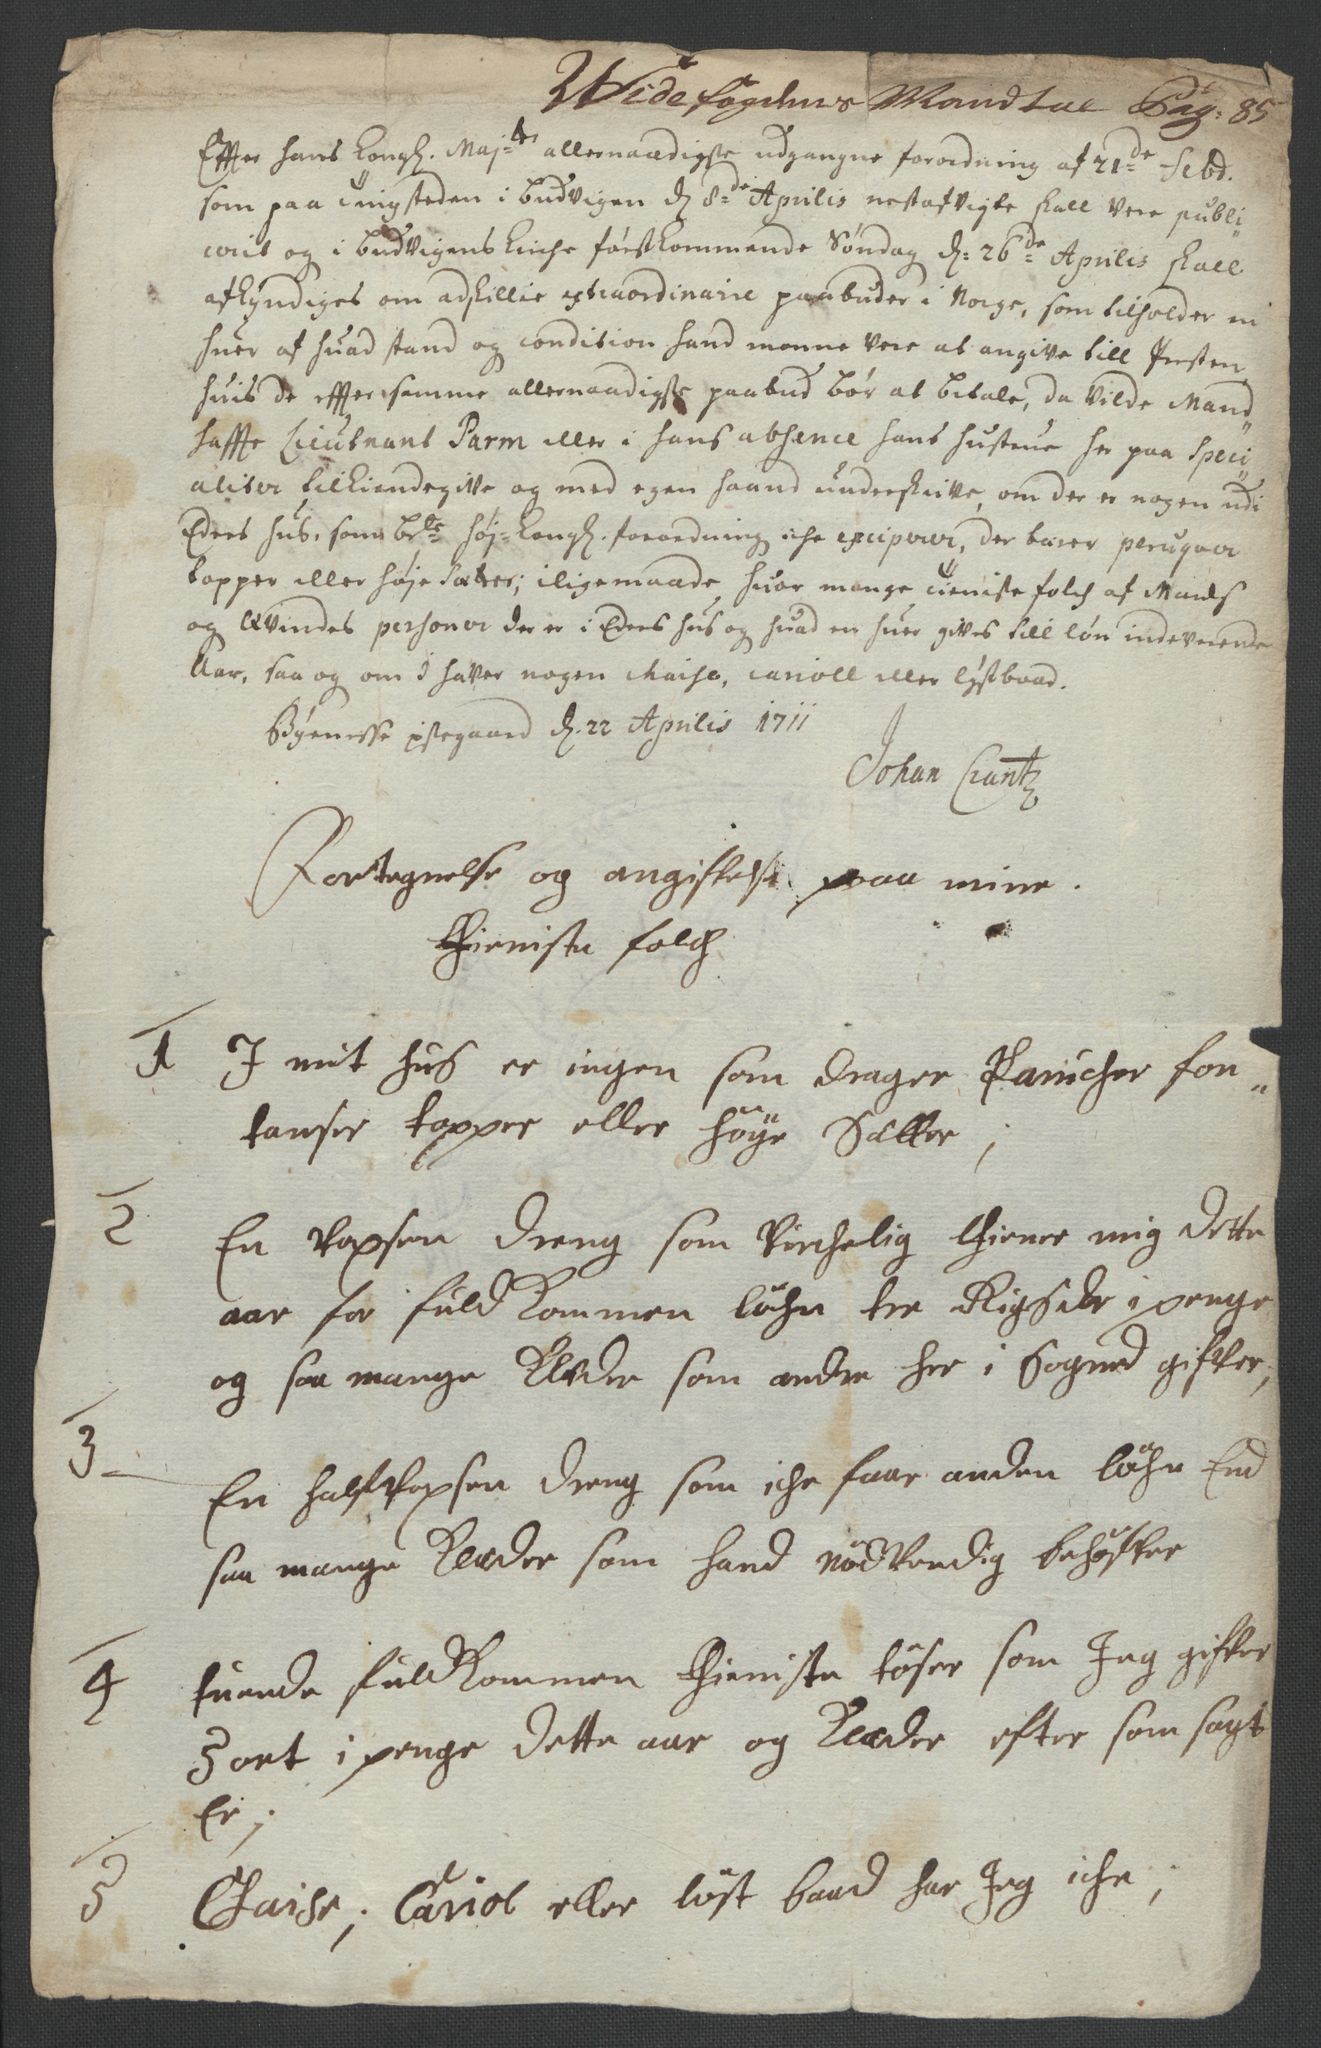 Wide fogdens Mandtal Pag: 85
Effter hans Kongl. Maj=ts allernaadigste udgangne forordning af 21=de Febr.
som paa tingsteden i Budvigen d. 8=de Aprilis nestafvigte skall vere publi„
cerit og i Budvigens Kirche førstkommende Søndag d: 26=de Aprilis skall
afkyndiges om adskillie extraordinaire paabuder i Norge, som tilholder en
huer af huad stand og condition hand monne vere at angive till Presten,
huis de effter samme allernaadigste paabud bør at betale, da vilde Mand„
haffte Lieutnant Parm eller i hans absence hans hustrue her paa speci„
aliter tilkiendegive og med egen haand underskrive, om der er nogen udi
Eders hus, som bete høj=Kongl. forordning iche exciperer, der bærer peruqver
topper eller høje Sætter; iligemaade, huor mange tieniste folch af Mands
og Qvindes personer der er i Eders hus og huad en huer gives till løn indeverende
Aar, saa og om I haver nogen chaise, cariole eller lystbaad.
Bøgenesse pstegaard d. 22 Aprilis 1711
Johan Crantz
Fortegnelse og angiffvelse paa mine
thieniste folch
1 I mit hus er ingen som drager Parucher fon„
tanser topper eller høye Sætter;
2 En voxsen dreng som virchelig thiener mig dette
aar for fuldkommen løhn tre Rigsdr i penge
og saa mange Klæder som andre her i Sogned gifver,
3 En halfvoxsen dreng som iche faar anden løhn End
saa mange Klæder som hand nødvendig behøfver
4 tuende fuldkommen thieniste tøser som Jeg gifver
5 ort i penge dette aar og Klæder efter som sagt
Er;
5 Chaise; Cariol eller løst baad har Jeg iche;